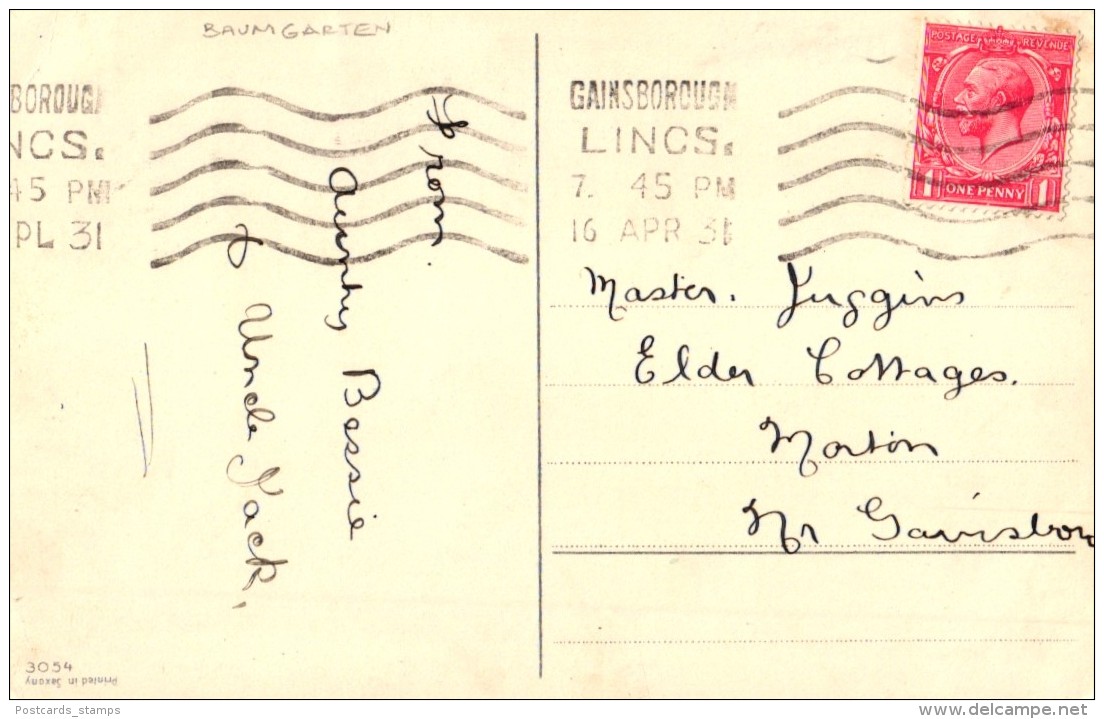 BAUMGARTEN
BOROUGH
NCS.
45 PM
PL 31
From.
Aunty Bessie
& Uncle Jack.
GAINSBOROUGH
LINCS.
7. 45 PM
16 APR 31
POSTAGE REVENUE
1 ONE PENNY 1
Master. Juggins
Elder Cottages.
Morton
Nr Gainsboro
3054
Printed in Saxony
Postcards_stamps
www.delcampe.net